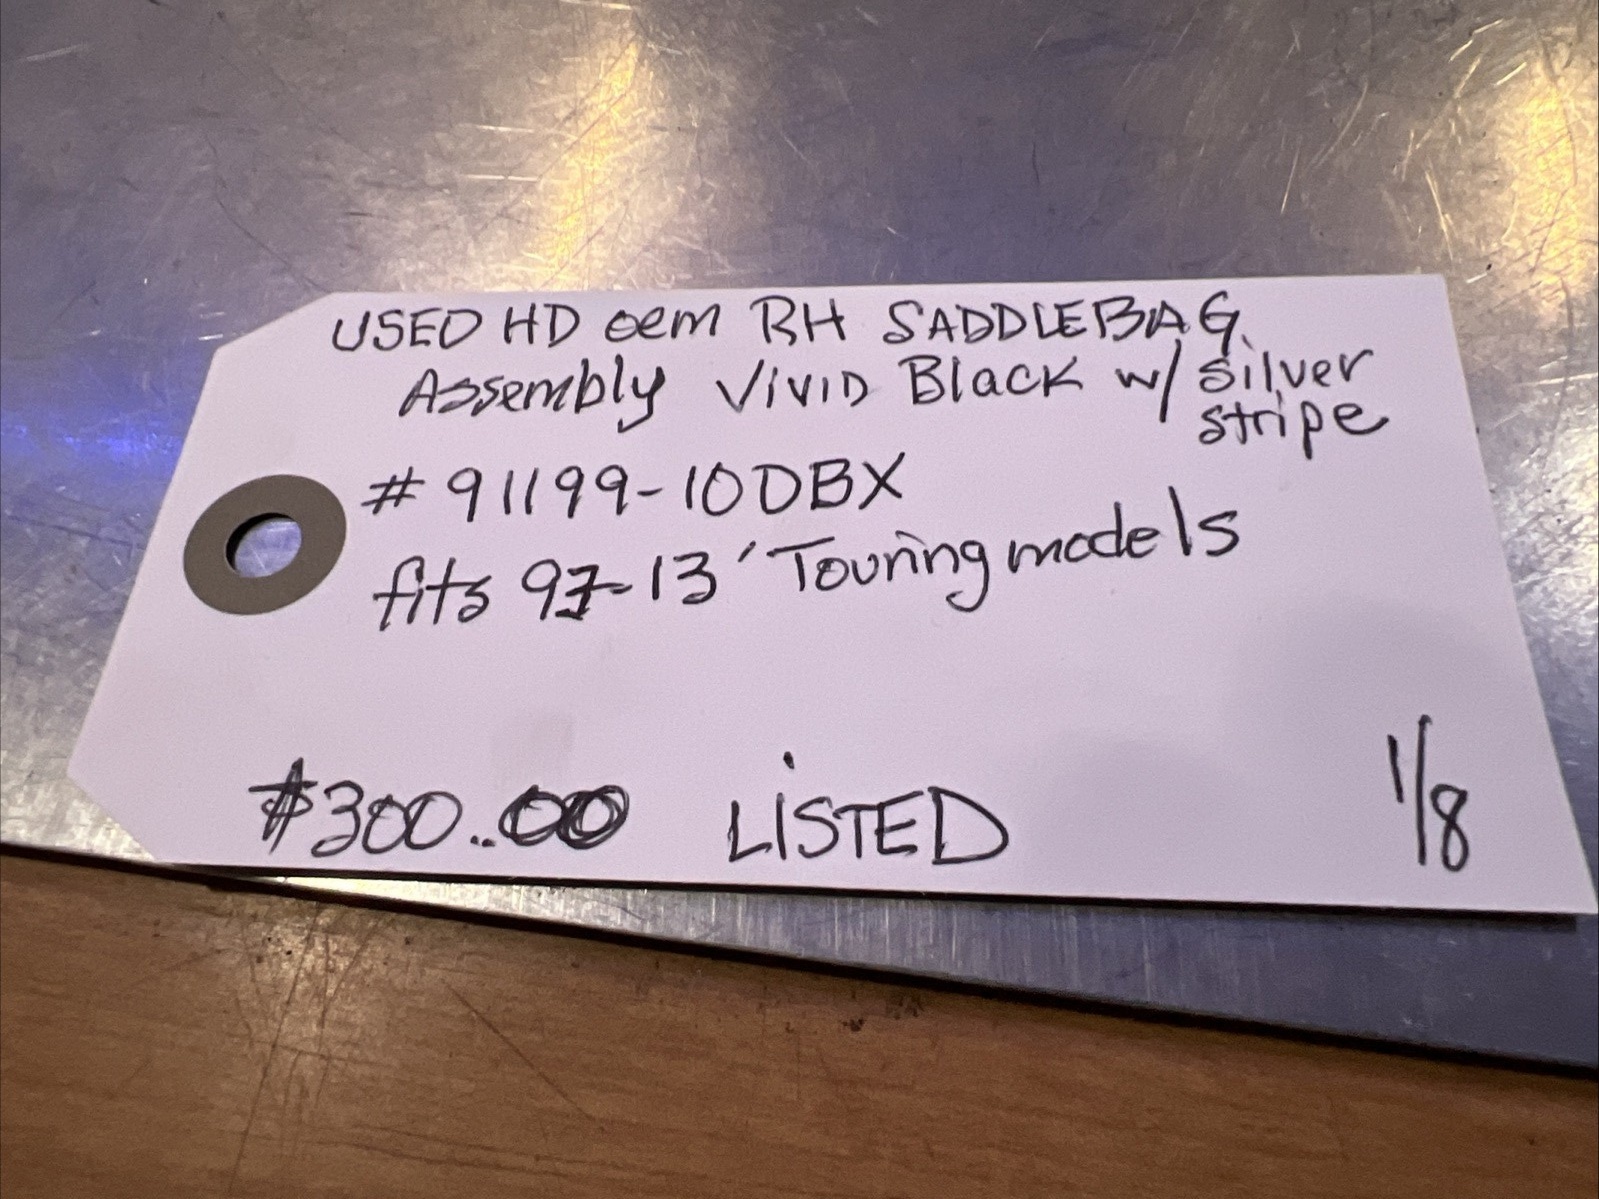 USED HD oem RH SADDLEBAG
Assembly VIVID Black w/ silver
stripe
# 91199-10DBX
fits 97-13' Touring models
$300..00 LiSTED 1/8